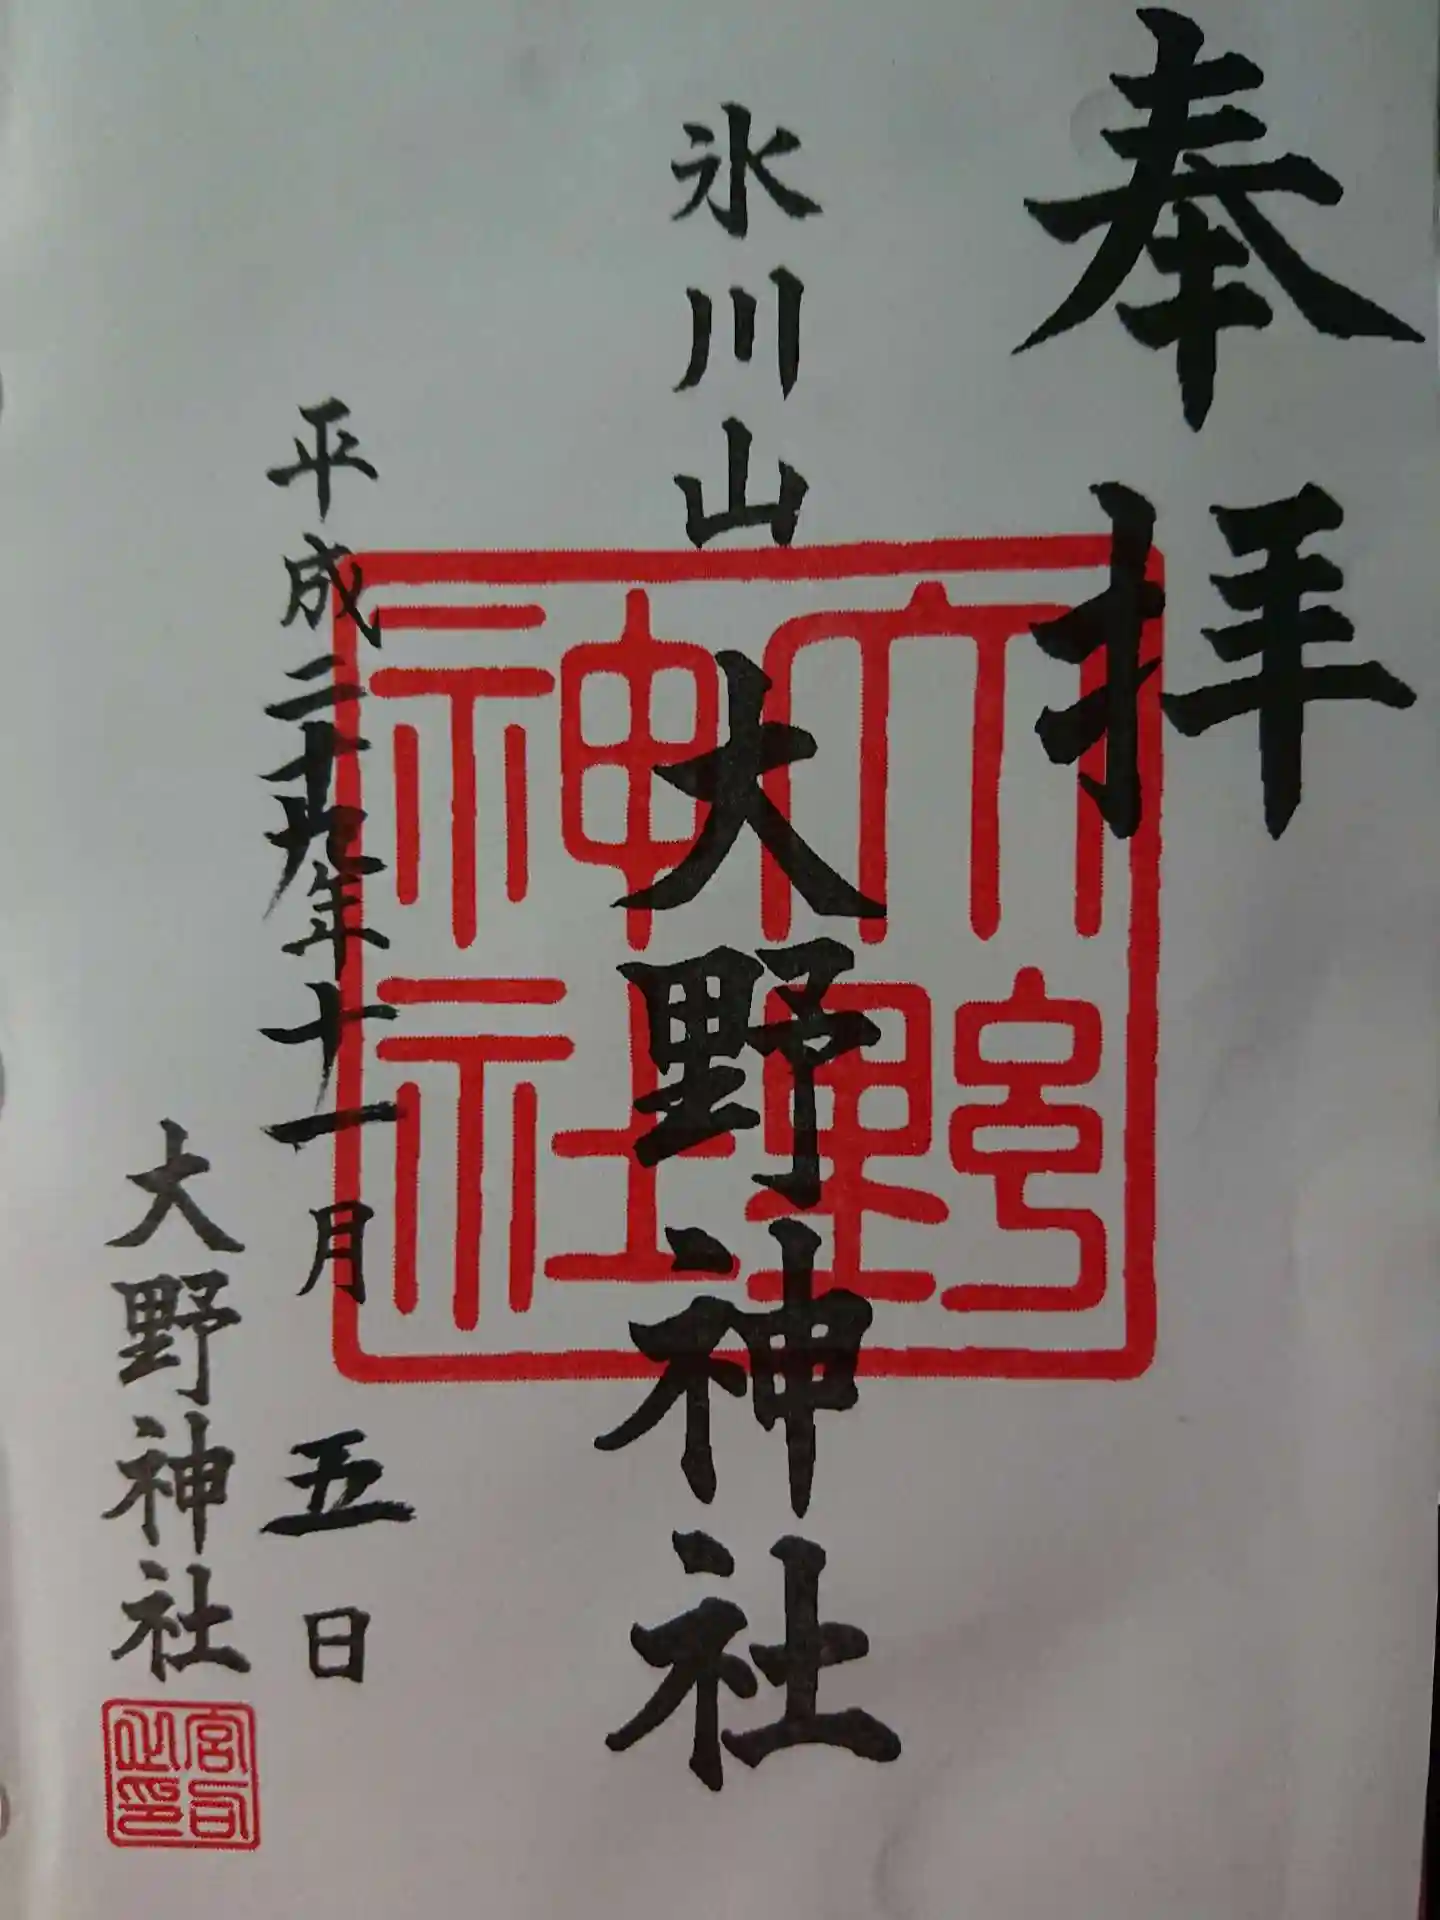 奉拝
氷川山
大野神社
大野神社
平成二十九年十一月五日
大野神社
宮司之印